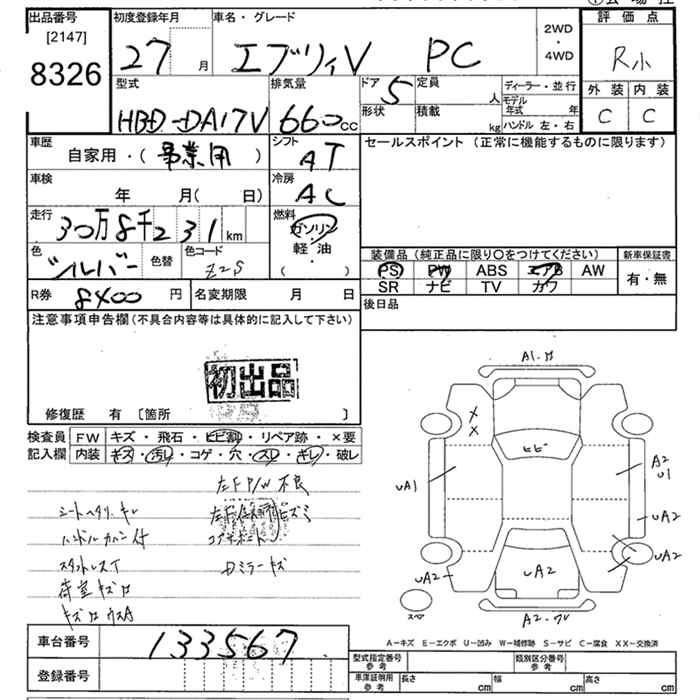 出品番号
[2147]
8326
初度登録年月
27 月
車名・グレード
エブリィV PC
2WD
・
4WD
評価点
R小
外装 内装
C C
型式
HBD-DA17V
排気量
660cc
ドア
5
形状
定員
人
積載
kg
ディーラー・並行
モデル年式 年
ハンドル 左・右
車歴
自家用・(事業用)
シフト
AT
セールスポイント(正常に機能するものに限ります)
車検
年 月( 日)
冷房
AC
走行
30万8千231km
燃料
ガソリン
軽・油
( )
色
シルバー
色替
色コード
Z2S
装備品(純正品に限り○をつけてください)
新車保証書
PS PW ABS エアB AW
SR ナビ TV カワ
有・無
R券
8400円
名変期限 月 日
後日品
注意事項申告欄(不具合内容等は具体的に記入して下さい)
初出品
修復歴 有 〔箇所 〕
検査員
記入欄
FW キズ・飛石・ヒビ割・リペア跡・×要
内装 キズ・汚レ・コゲ・穴・スレ・キレ・破レ
左FP/W不良
シートヘタリ・キレ
ハンドルカバー付
荷室キズ
車台番号
133567
登録番号
A1
××
ヒビ
UA1
A2
U1
UA2
UA2
UA2
UA2
スペア
A2
A-キズ E-エクボ U-凹み W-補修跡 S-サビ C-腐食 XX-交換済
型式指定番号
参考
類別区分番号
参考
車庫証明用
参考
長さ cm 幅 cm 高さ cm